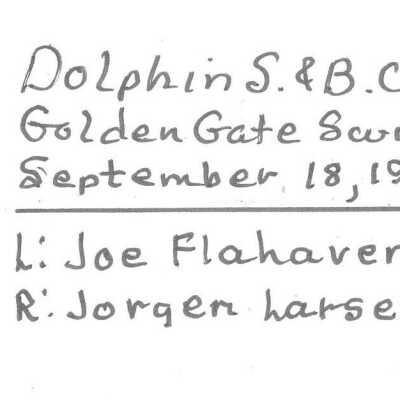 Dolphin S. & B. C
Golden Gate Swi
September 18, 19
L: Joe Flahaver
R: Jorgen Larse